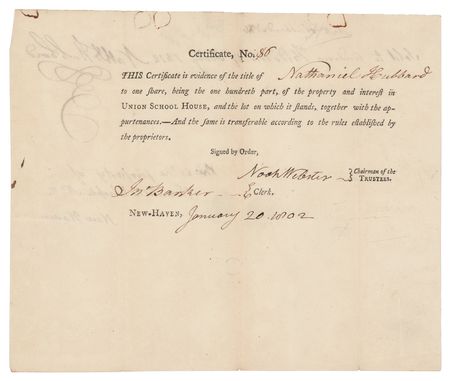 Certificate, No. 86
THIS Certificate is evidence of the title of Nathaniel Hubbard
to one share, being the one hundredth part, of the property and interest in
UNION SCHOOL HOUSE, and the lot on which it stands, together with the ap-
purtenances.—And the same is transferable according to the rules established by
the proprietors.
Signed by Order,
Noah Webster } Chairman of the
TRUSTEES.
Jno Barker } Clerk.
NEW-HAVEN, January 20. 1802